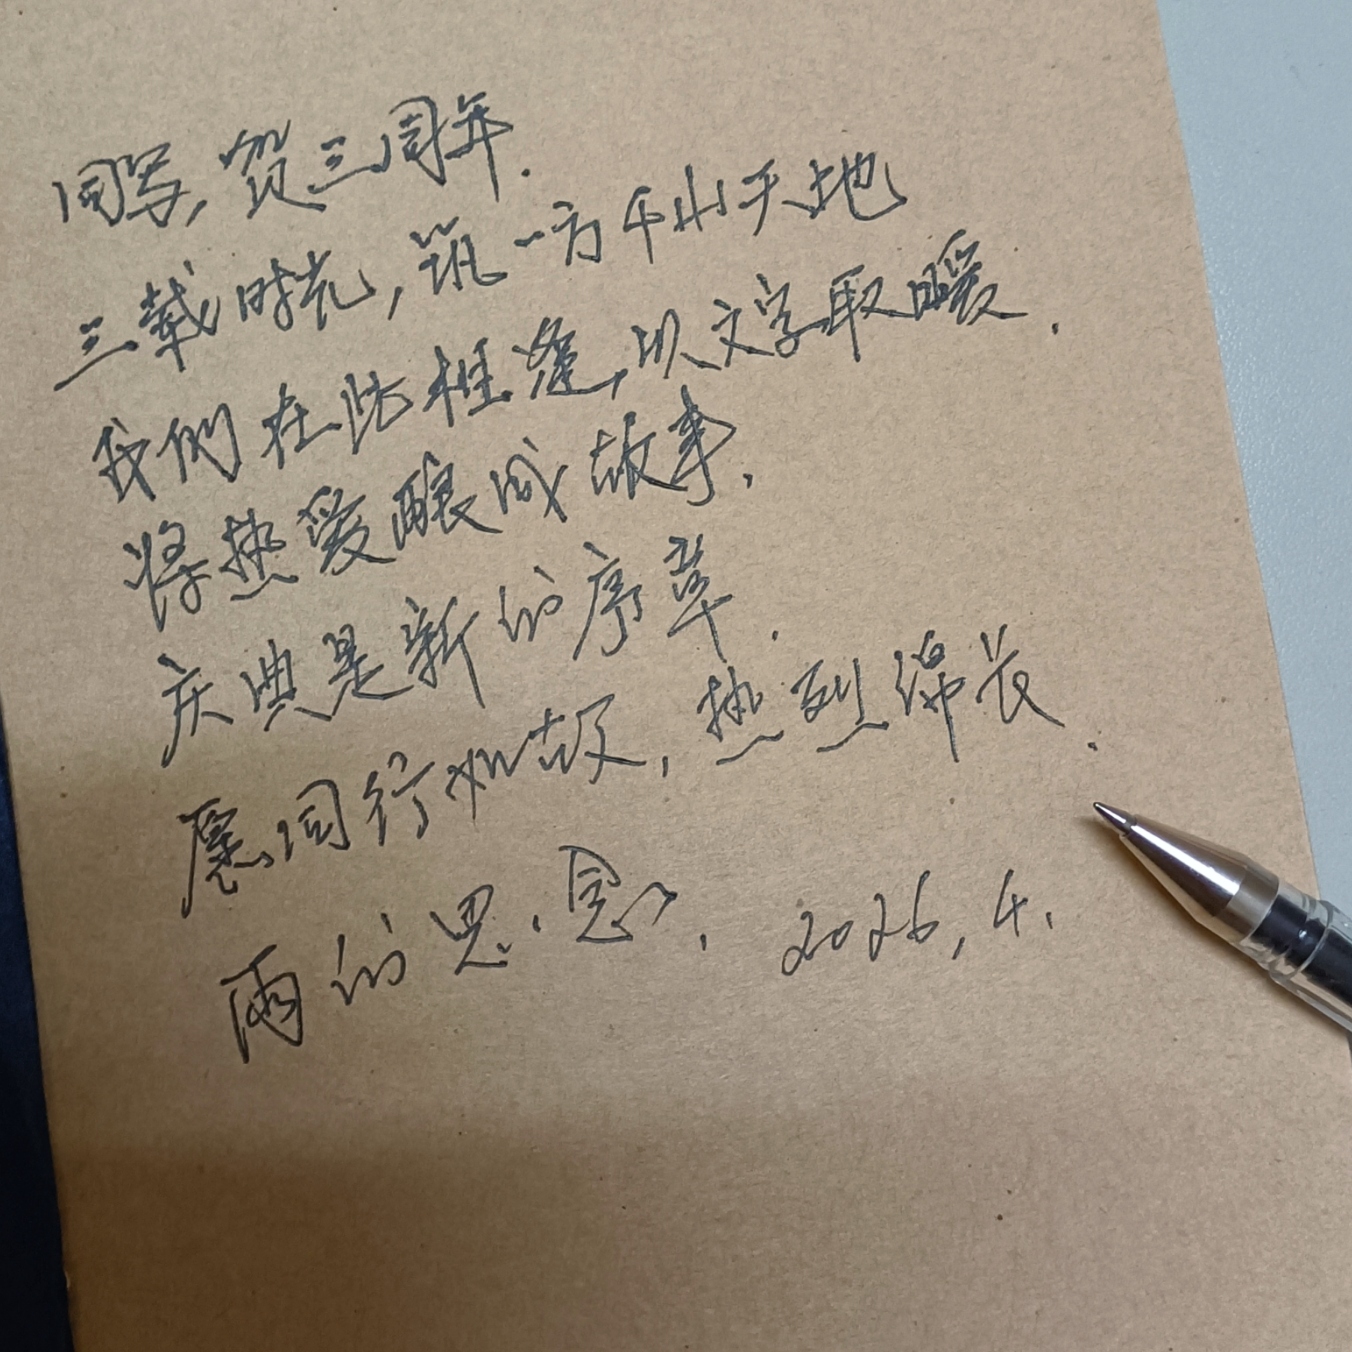 同写,贺三周年.
三载时光,筑一方千山天地
我们在此相逢,以文字取暖.
将热爱酿成故事.
庆典是新的序章.
愿同行如故,热烈绵长.
雨的思念. 2026.4.